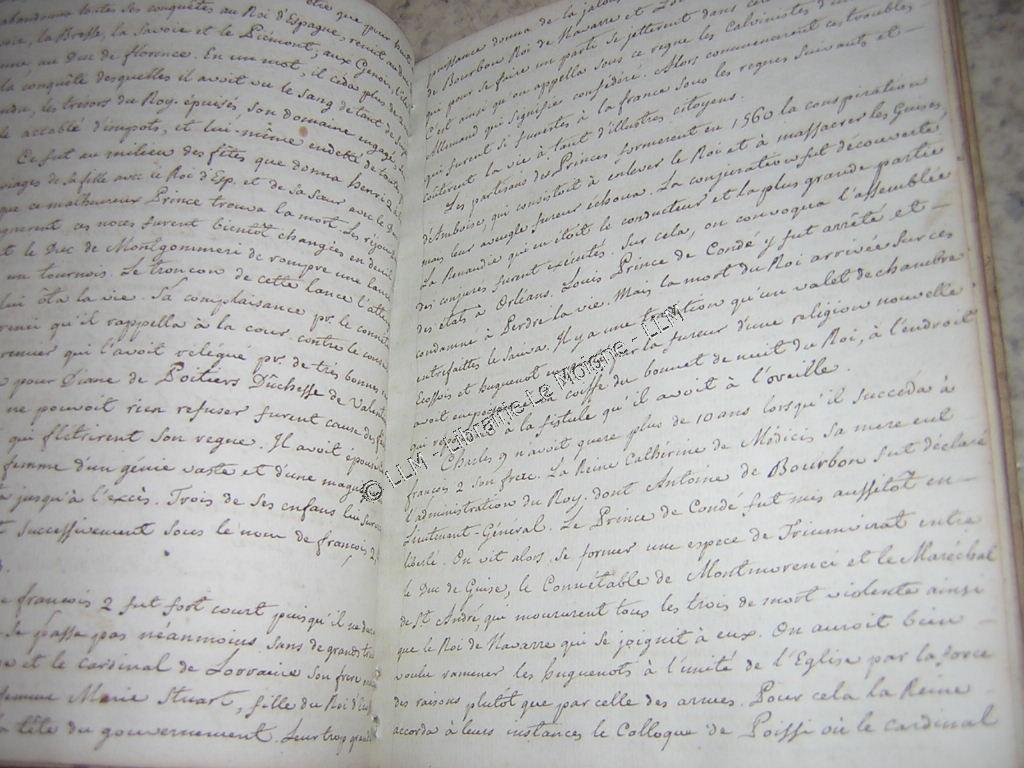 abandonna toutes ses conquêtes au Roi d'Espagne, remit au Duc de
la Bresse, la Savoie et le Piémont, aux Genois l'isle
au Duc de florence. En un mot, il ceda plus de
la conquête desquelles il avoit vu le sang de tant de
les trésors du Roy. épuisés, son domaine engagé
accablé d'impots, et lui-même endetté de toute
Ce fut au milieu des fêtes que donna henri 2 de
mariages de sa fille avec le Roi d'Esp. et de sa Sœur avec le Duc
que ce malheureux Prince trouva la mort. Les réjouis
ces noces furent bientôt changées en deuil
et le Duc de Montgommeri de rompre une lance
un tournois. Le troncon de cette lance l'atte
lui ôta la vie. Sa complaisance pr. le connét
renci qu'il rappella à la cour, contre le cons
premier qui l'avoit rélegué pr. de très bonnes
pour Diane de Poitiers Dûchesse de Valent
ne pouvoit rien refuser furent cause des
qui flétrirent son regne. Il avoit epousé
femme d'un génie vaste et d'une magni
jusqu'à l'excès. Trois de ses enfans lui
successivement sous le nom de françois 2
françois 2 fut fort court puisqu'il ne dura
se passe pas néanmoins sans de grands
et le cardinal de Lorraine son frere
femme Marie Stuart, fille du Roi d'Ec
la tête du gouvernement. Leur trop grande
puissance donna de la jalousie
de Bourbon Roi de Navarre et
qui pour se faire un parti se jetterent dans
C'est ainsi qu'on appella sous ce regne les Calvinistes d'un
Allemand qui signifie confédéré. Alors commencerent ces troubles
qui furent si funestes à la france sous les regnes suivants et
coûterent la vie à tant d'illustres citoyens.
Les partisans des Princes formerent en 1560 la conspiration
d'Amboise, qui consistoit à enlever le Roi et à massacrer les Guises,
mais leur aveugle fureur échoua. La conjuration fut découverte
La Renaudie qui en étoit le conducteur et la plus grande partie
des conjurés furent exécutés. Sur cela, on convoqua l'assemblée
des etats à Orléans. Louis Prince de Condé y fut arrêté et
condamné à Perdre la vie. Mais la mort du Roi arrivée sur ces
entrefaittes le sauva. Il y a une tradition qu'un valet de chambre
Ecossois et huguenot par la fureur d'une religion nouvelle
avoit empoisonné la coiffe du bonnet de nuit du Roi, à l'endroit
qui répondoit à la fistule qu'il avoit à l'oreille.
Charles 9 n'avoit guere plus de 10 ans lorsqu'il succéda à
françois 2 son frere. La Reine Cathérine de Médicis sa mere eut
l'administration du Roy. dont Antoine de Bourbon fut déclaré
Lieutenant-Général. Le Prince de Condé fut mis aussitot en
liberté. On vit alors se former une espece de Triumvirat entre
le Duc de Guise, le Connétable de Montmorenci et le Maréchal
de St. André, qui moururent tous les trois de mort violente ainsi
que le Roi de Navarre qui se joignit à eux. On auroit bien
voulu ramener les huguenots à l'unité de l'Eglise par la force
des raisons plutôt que par celle des armes. Pour cela la Reine
accorda à leurs instances le Colloque de Poissi où le cardinal
© LLM - Librairie Le Moigne - LLM